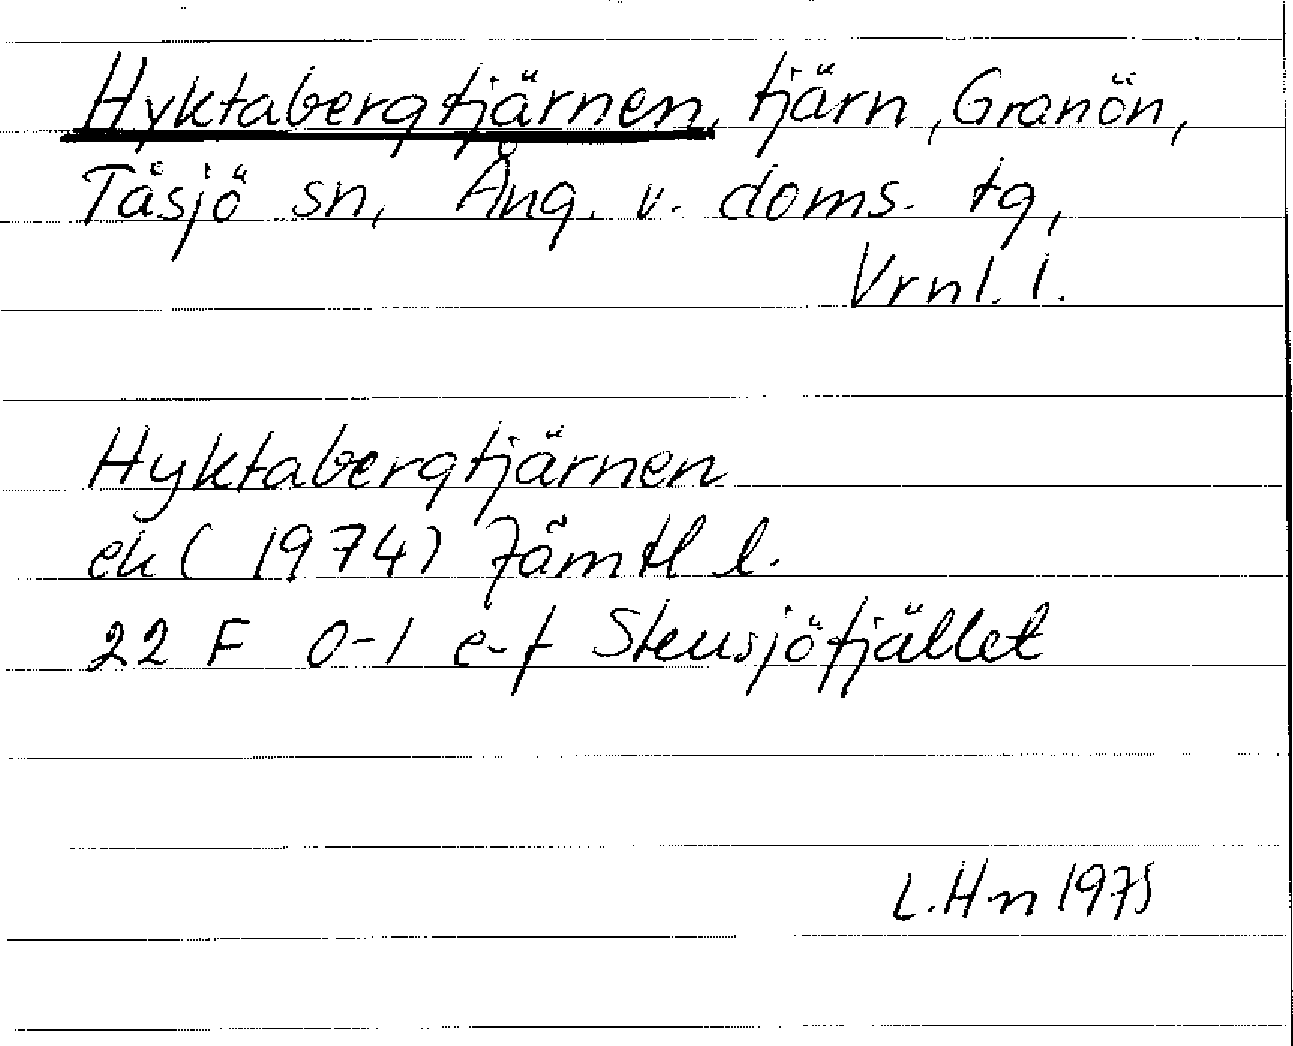 Hyktabergtjärnen, tjärn, Granön,
Tåsjö sn, Ång. v. doms. tg,
Vrnl. l.
Hyktabergtjärnen
ek (1974) Jämtl l.
22 F 0-1 e-f Stensjöfjället
L.Hn 1975